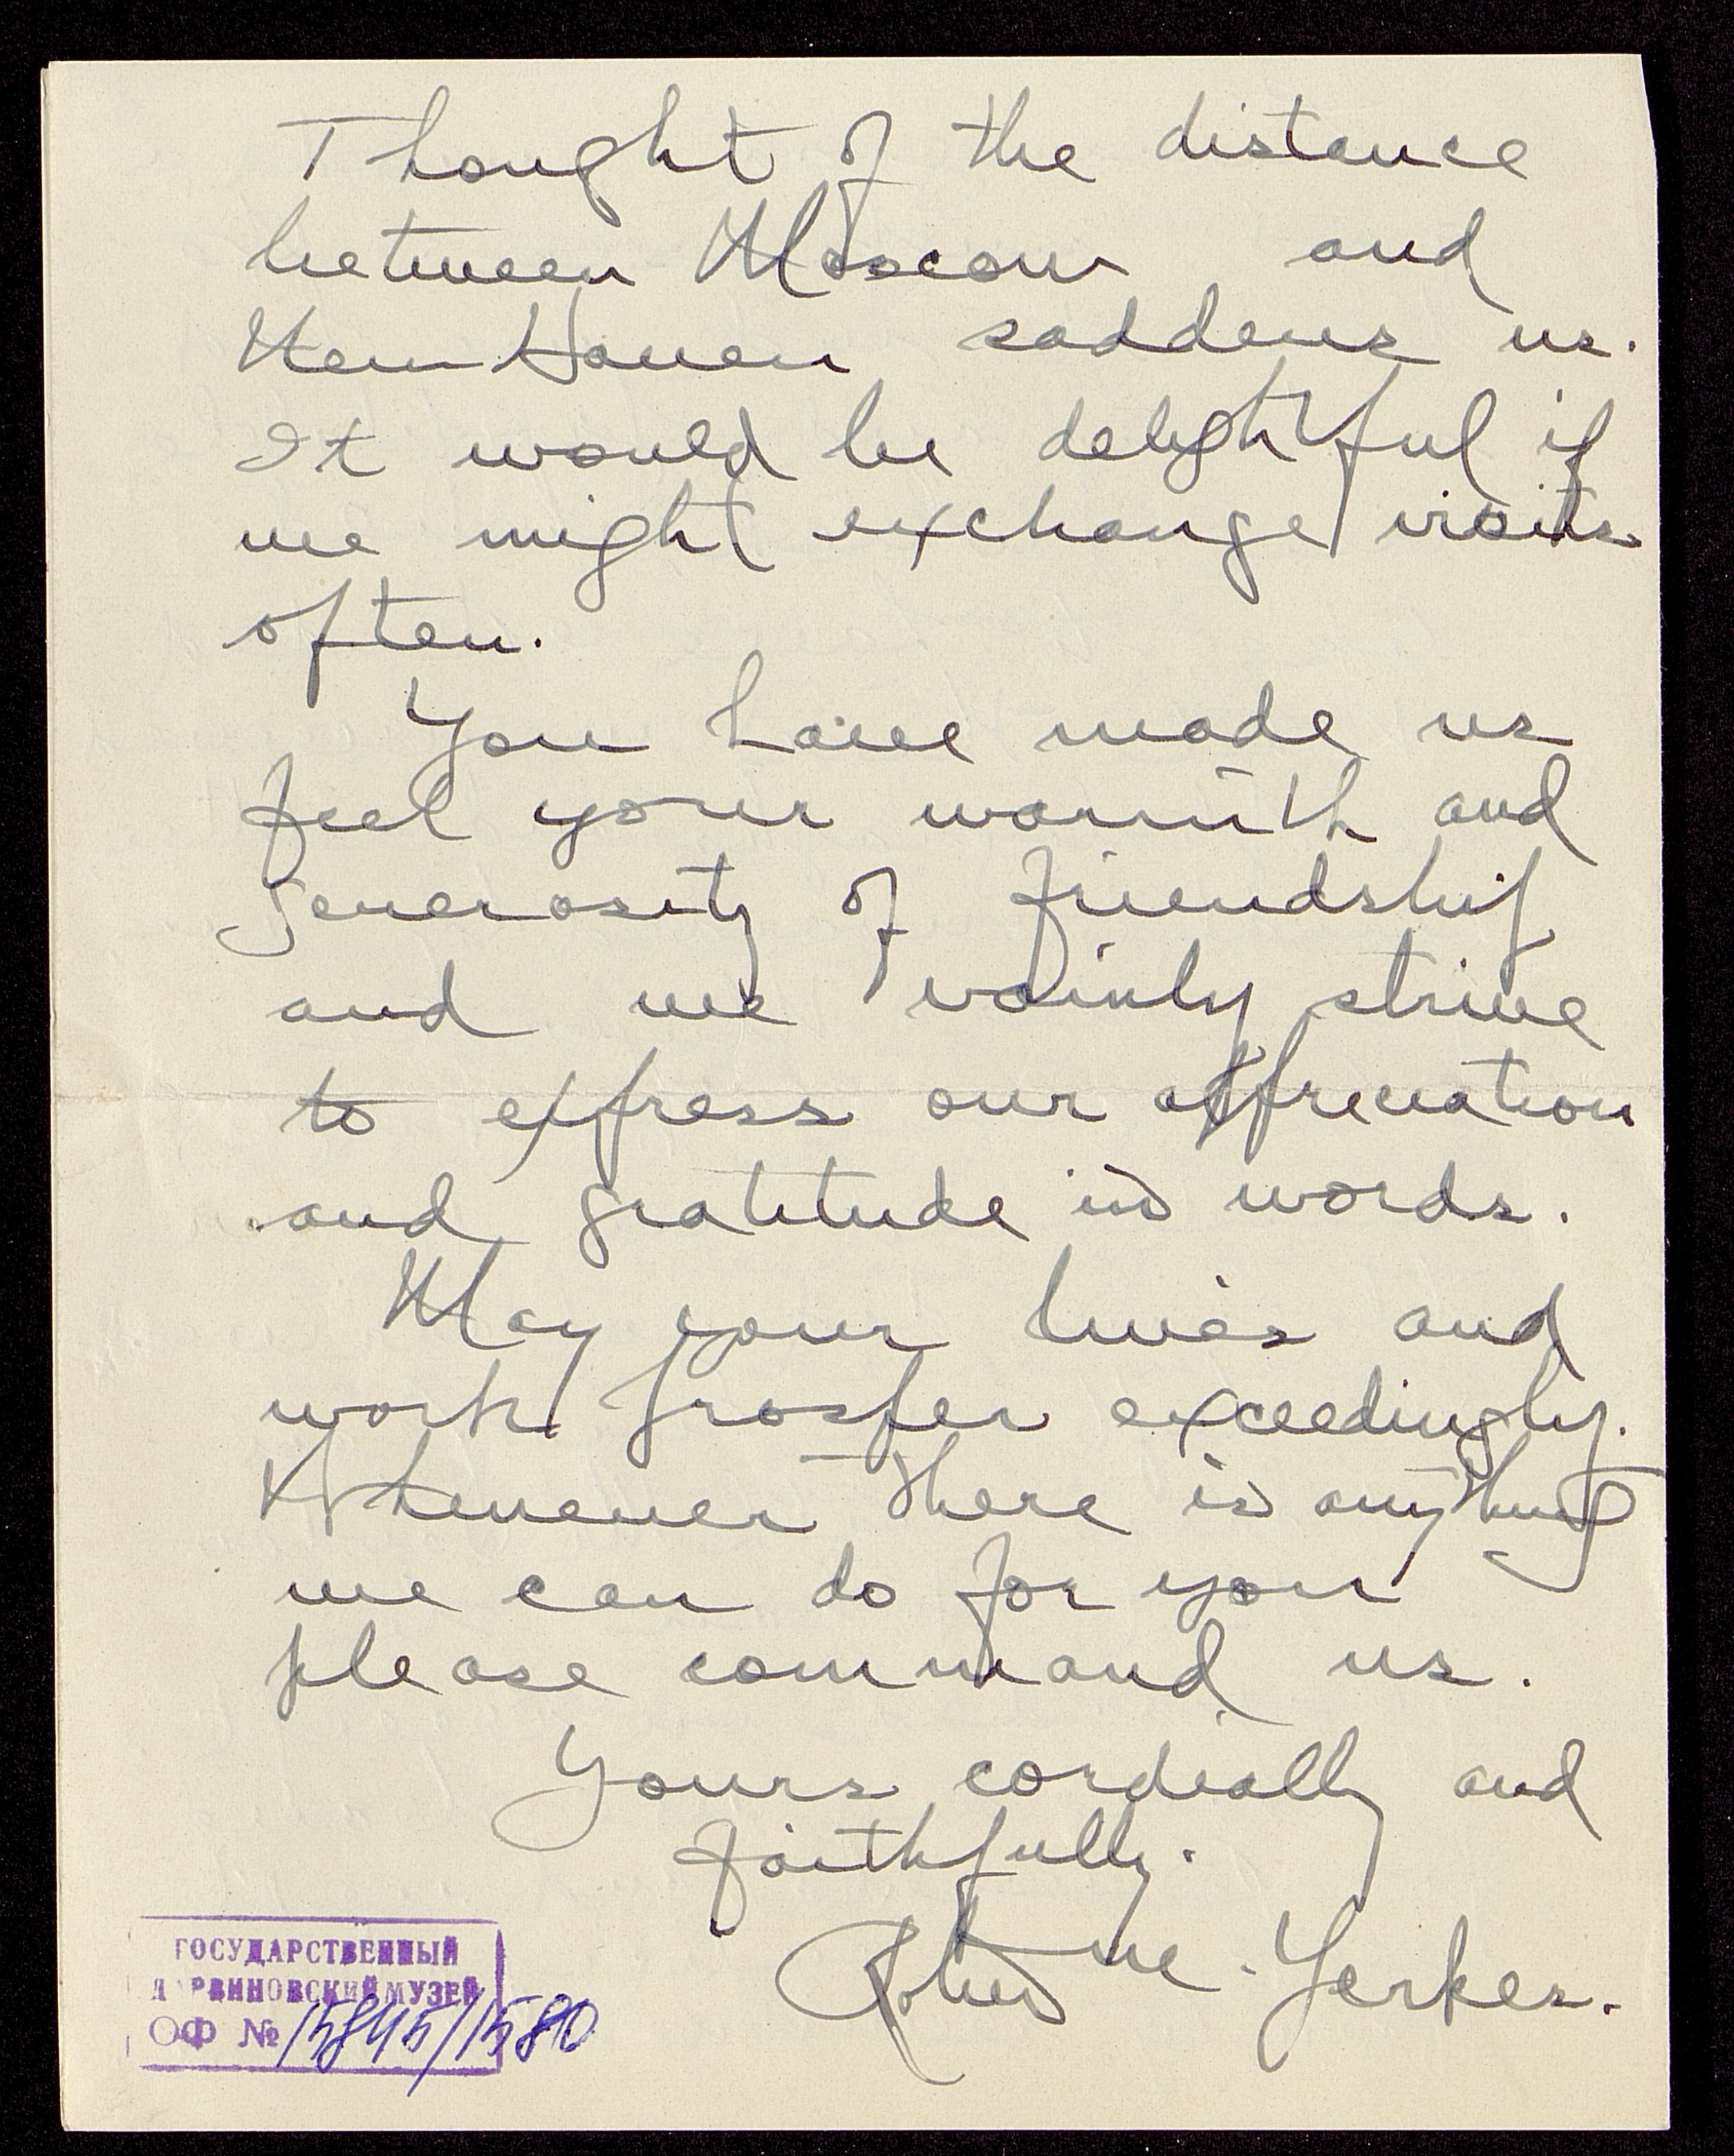 Thought of the distance
between Moscow and
New Haven saddens us.
It would be delightful if
we might exchange visits
often.
You have made us
feel your warmth and
generosity of friendship
and we vainly strive
to express our appreciation
and gratitude in words.
May your lives and
work prosper exceedingly.
Whenever there is anything
we can do for you
please command us.
Yours cordially and
faithfully.
Robert M. Yerkes.
ГОСУДАРСТВЕННЫЙ
ДАРВИНОВСКИЙ МУЗЕЙ
ОФ № 15845/1580